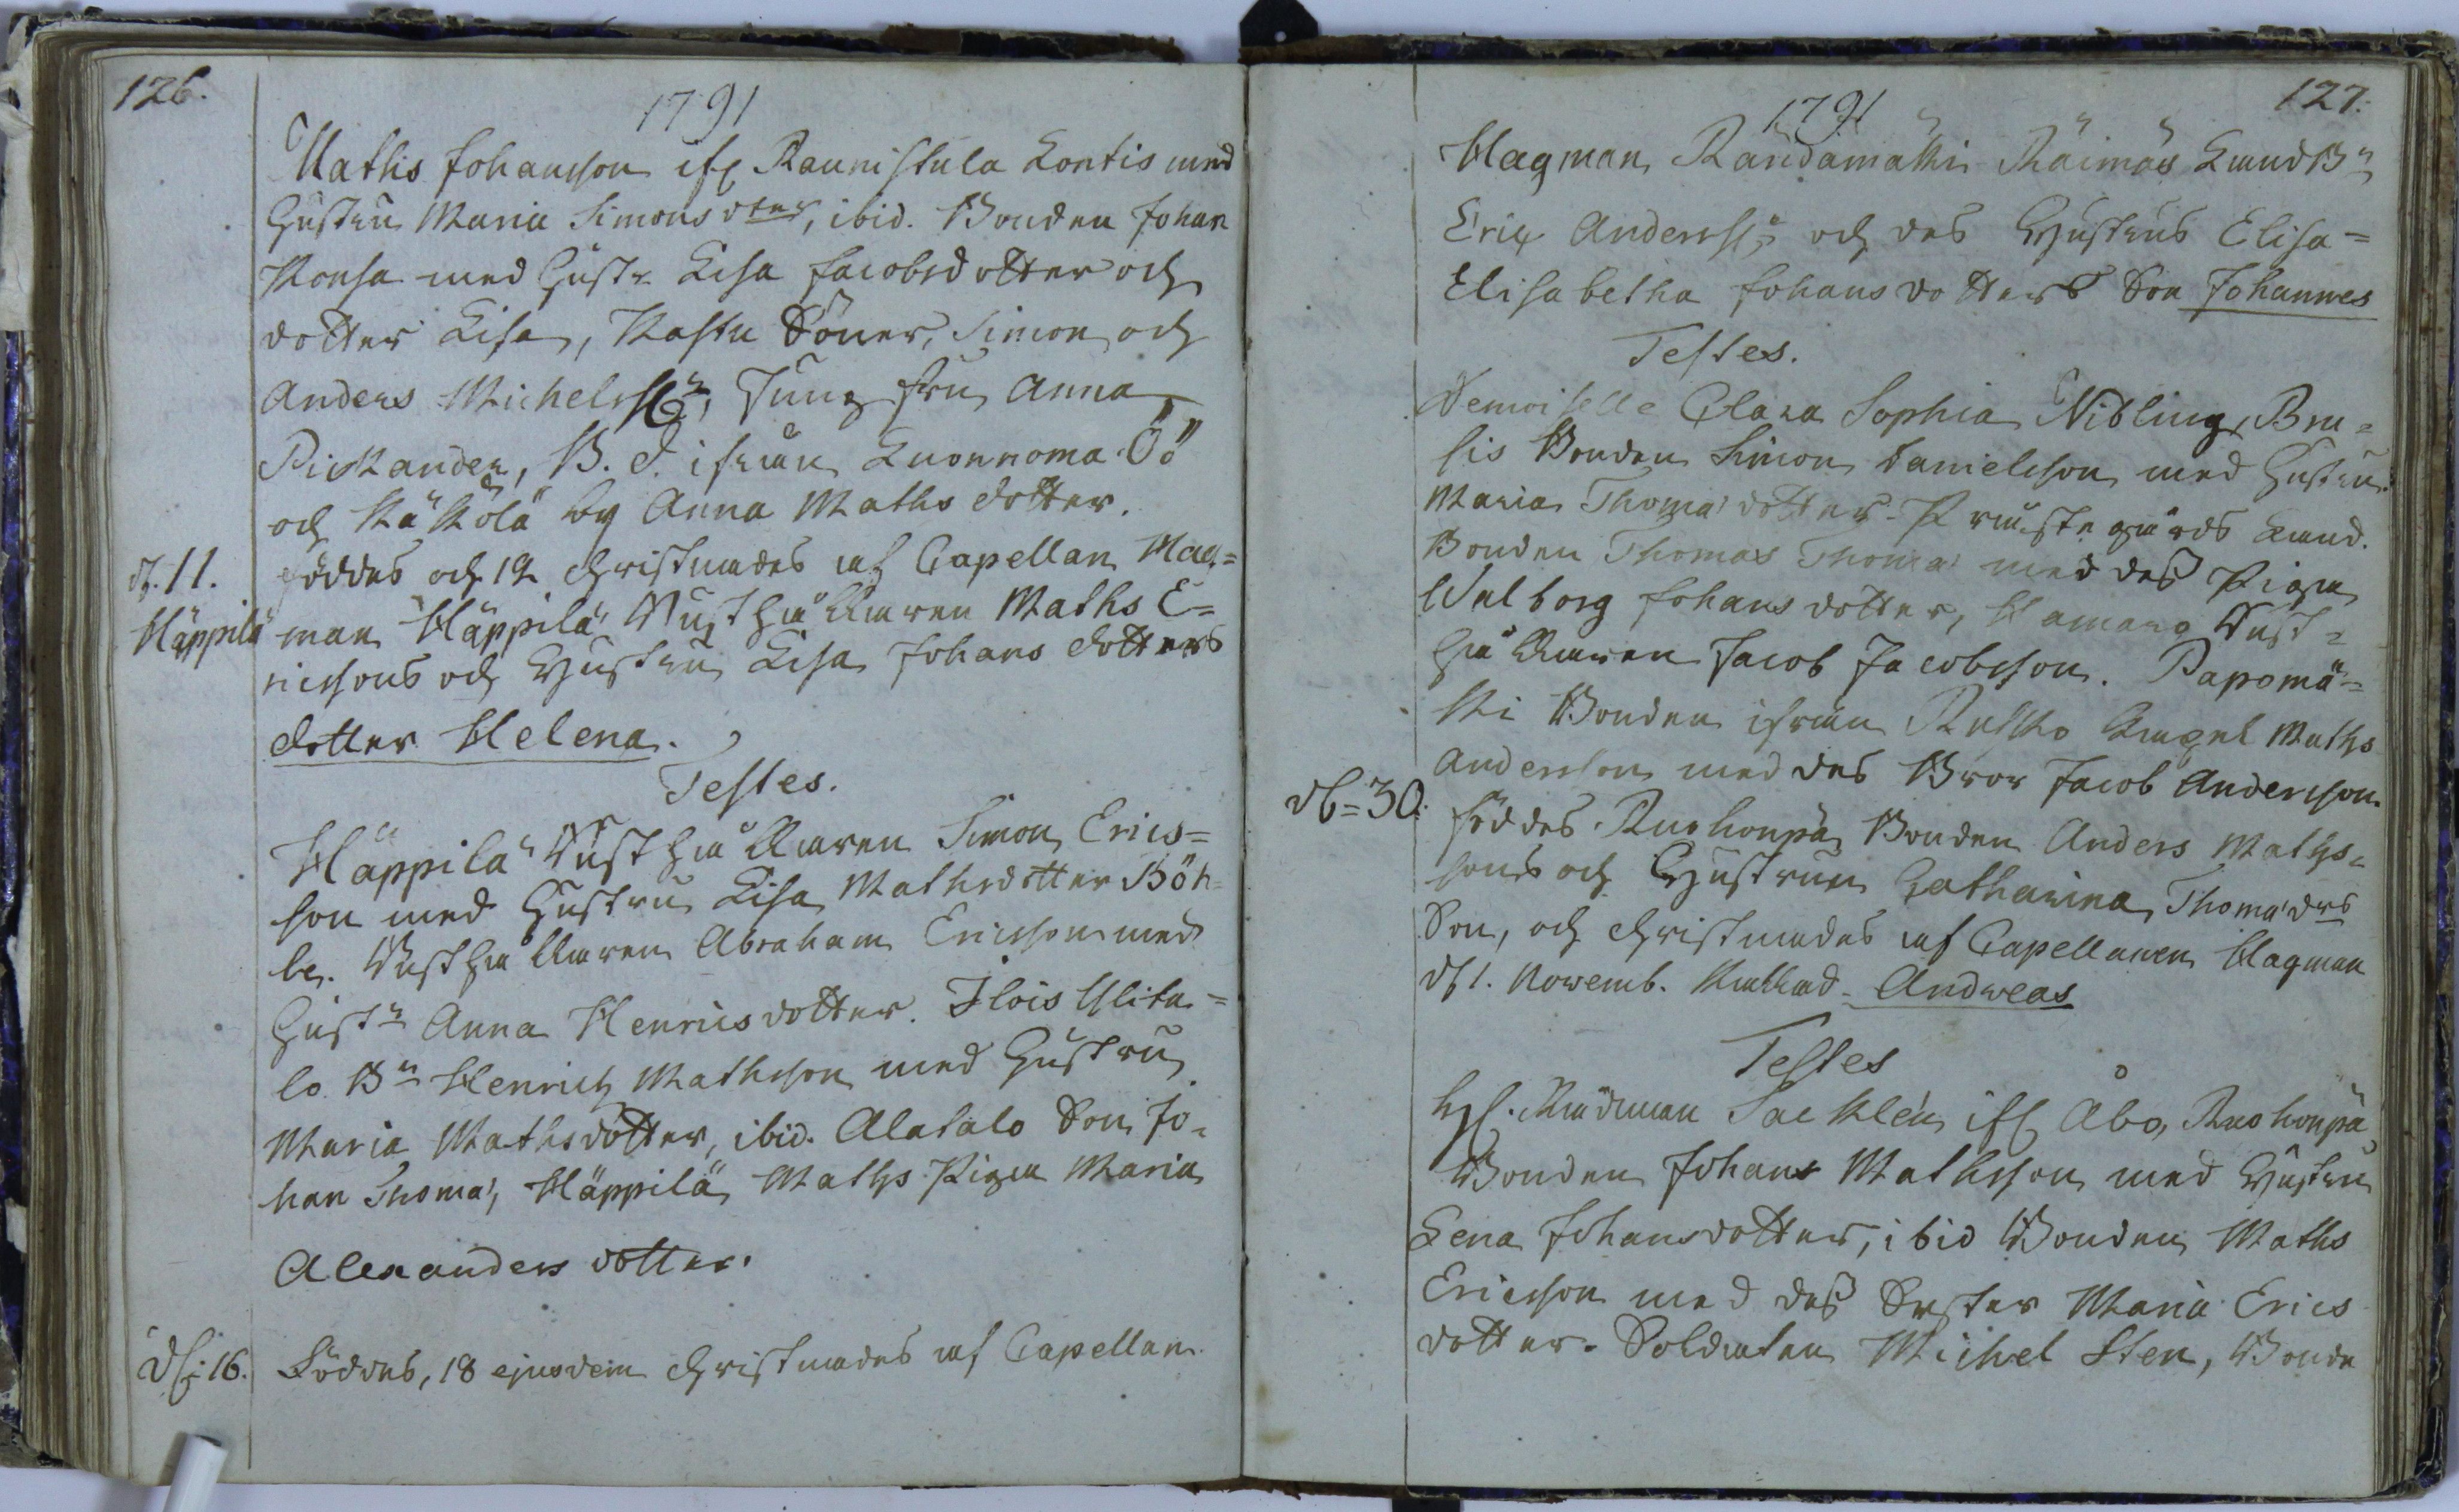 126.
1791
Maths Johansson ifr. Raunistula Kortis med
Hustru Maria Simonsdter, ibid. Bonden Johan
Korsa med Hustr Lisa Jacobsdotter och
dotter Lisa, Söner, Simon och
Anders Michelss:r, Jungfru Anna
Pickander, B. d. ifrån Luonnoma Öö
och Käkölä by Anna Maths dotter.
d. 11. föddes och 12 christnades af Capellan Hag=
Häppilä man Häppilä Rusthållaren Maths E=
ricssons och Hustru Lisa Johans dotters
dotter Helena.
Testes.
Häppilä Rusthållaren Simon Erics=
son med Hustru Lisa Mathsdotter Böh=
le. Rusthållaren Abraham Ericsson med
Hustr Anna Henricsdotter. Ilois Ylita=
lo Bn Henrich Mathsson med Hustru
Maria Mathsdotter, ibid. Alatalo Son Jo=
han Thomas, Häppilä Maths Piga Maria
Alexanders dotter.
d: 16. Föddes, 18 ejusdem christnades af Capellan
127.
1791
Hagman, Randamäki Räimäs Landbn
Eric Anderss:s och des Hustrus Elisa=
Elisabetha Johansdotters Son Johannes
Testes.
Demoiselle Clara Sophia Nibling, Bru=
sis Bonden Simon Danielsson med Hustru
Maria Thomasdotter. Prästegårds Landb.
Bonden Thomas Thomas med des Piga
Walborg Johansdotter, Hamaro Rust=
hållaren Jacob Jacobsson. Papomä=
ki Bonden ifrån Rusko Capel Maths
Andersson med des Bror Jacob Andersson.
d. 30. föddes Ruohonpä Bonden Anders Maths=
sons och Hustrun Catharina Thomædrs
Son, och christnades af Capellanen Hagman
d. 1. Novemb. kallad Andreas
Testes
H. Rådman Sacklén ifr Åbo, Ruohonpä
Bonden Johans Mathsson med Hustru
Lena Johansdotter, ibid Bonden Maths
Ericsson med des Syster Maria Erics
dotter. Soldaten Michel Sten, Bonde